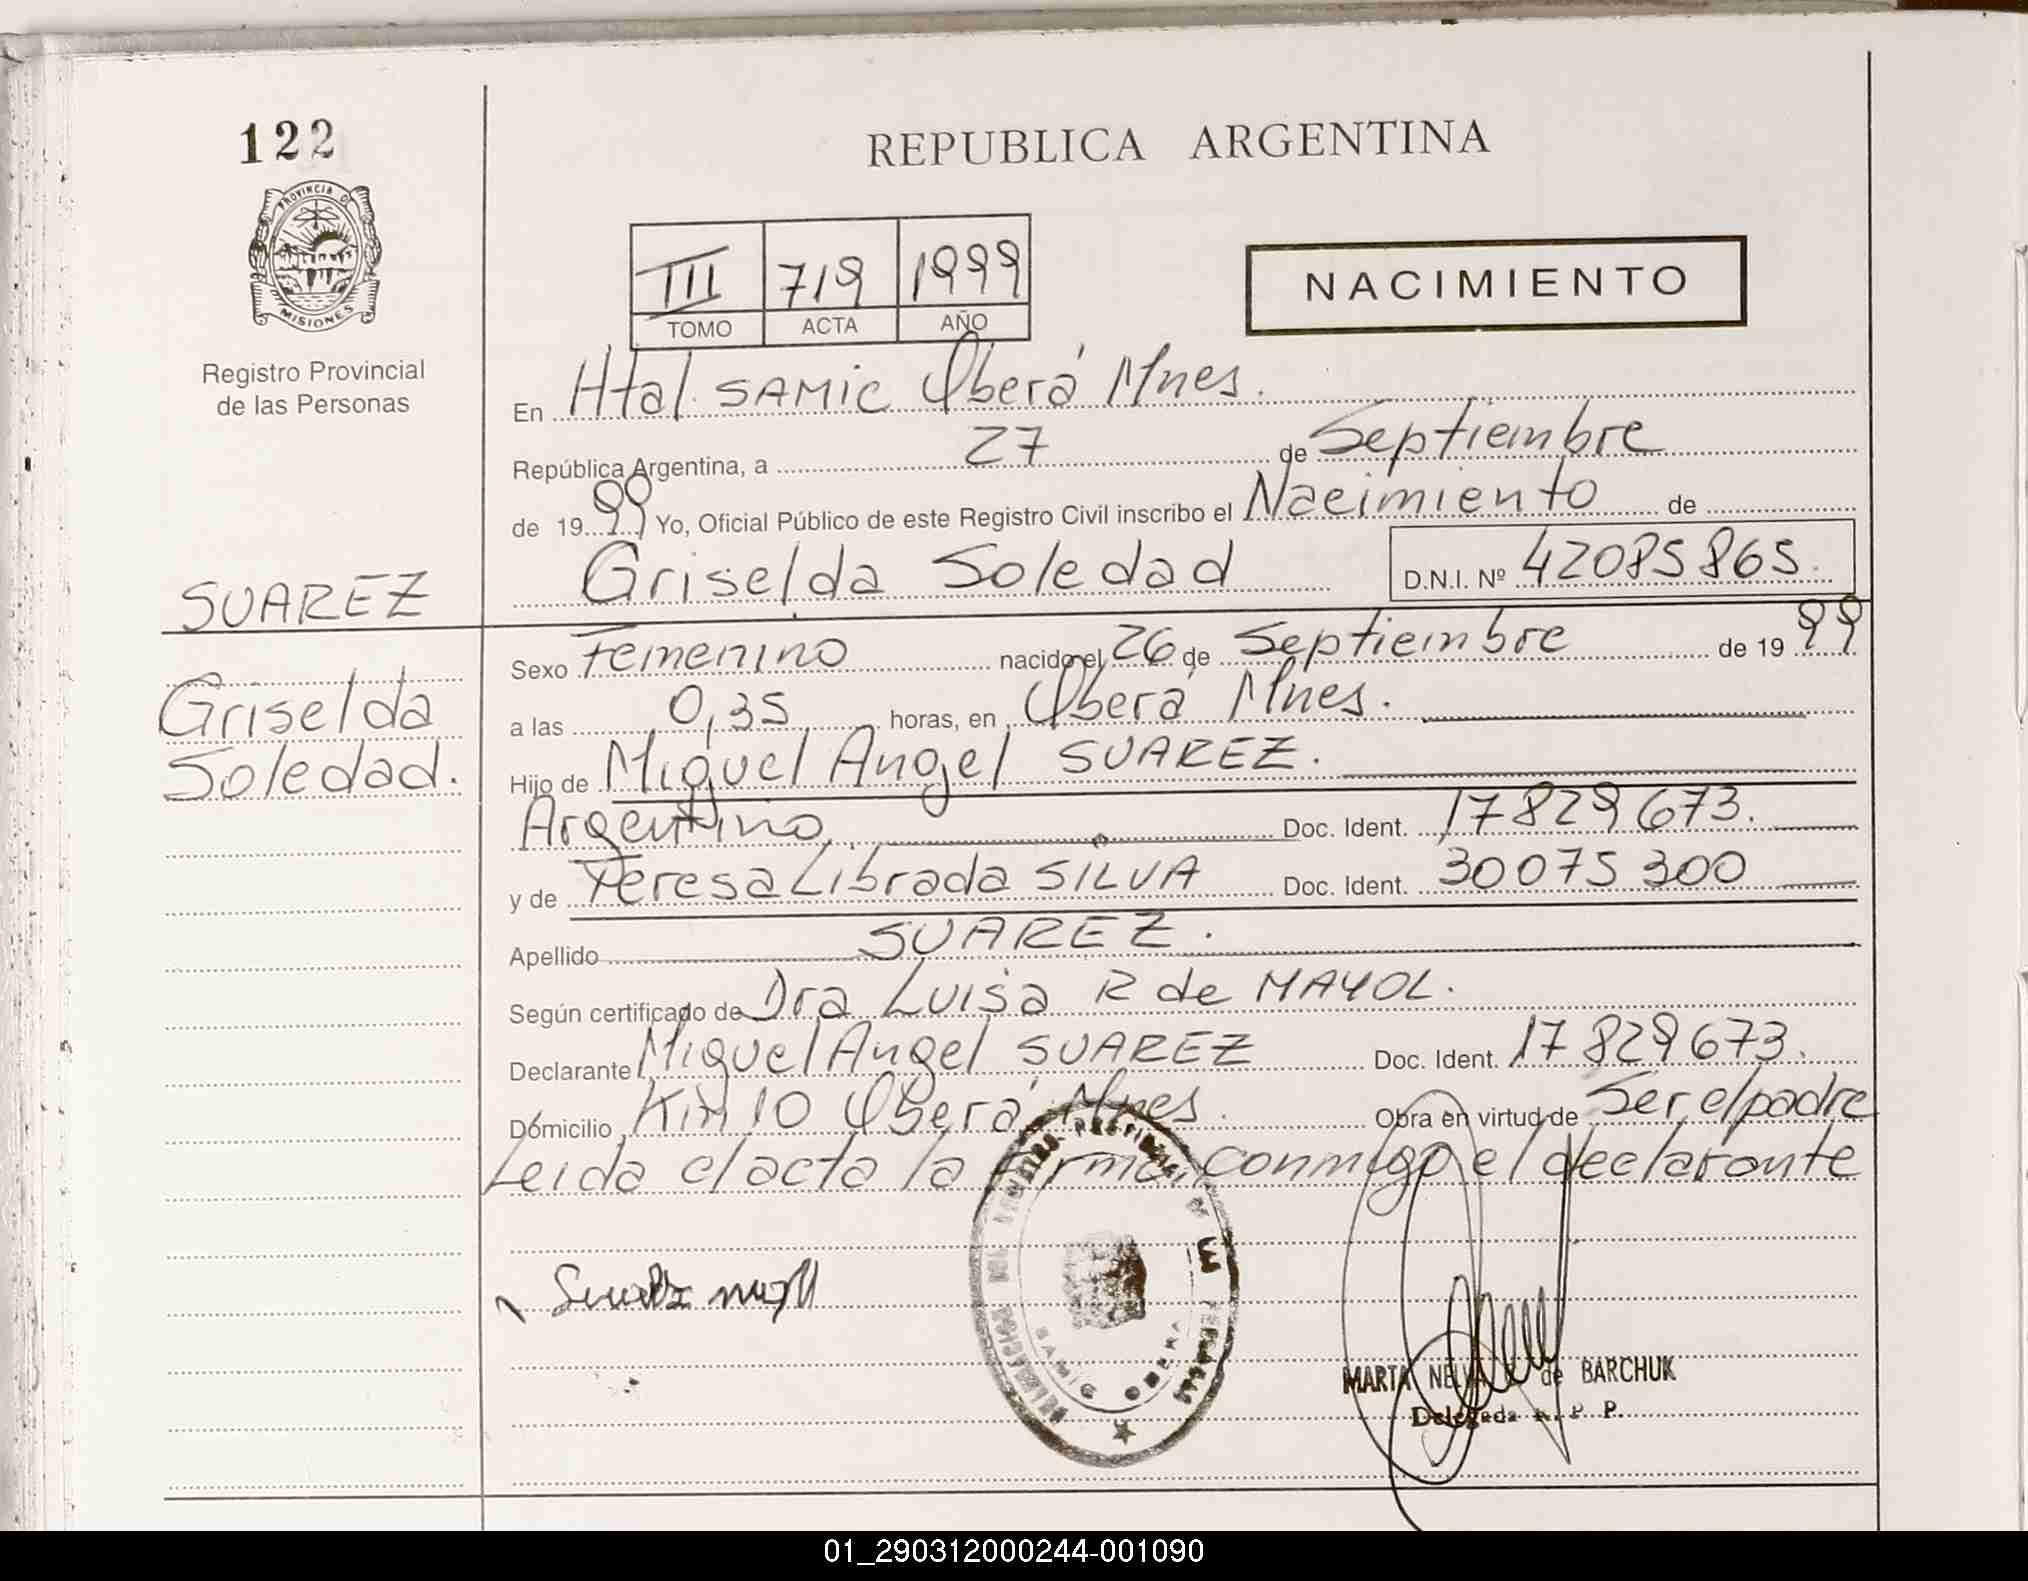 122
REPUBLICA ARGENTINA
PROVINCIA D
MISIONES
Registro Provincial
de las Personas
III 719 1999
TOMO ACTA AÑO
NACIMIENTO
En Htal. SAMIC Oberá Mnes.
República Argentina, a 27 de Septiembre
de 1999 Yo, Oficial Público de este Registro Civil inscribo el Nacimiento de
Griselda Soledad D.N.I. Nº 42085865.
SUAREZ
Griselda
Soledad.
Sexo Femenino nacido el 26 de Septiembre de 1999
a las 0,35 horas, en Oberá Mnes.
Hijo de Miguel Angel SUAREZ.
Argentino Doc. Ident. 17829673.
y de Teresa Librada SILVA Doc. Ident. 30075300
Apellido SUAREZ.
Según certificado de Dra Luisa R de MAYOL.
Declarante Miguel Angel SUAREZ Doc. Ident. 17829673.
Domicilio Km 10 Oberá Mnes. Obra en virtud de Ser el padre
Leida el acta la firma conmigo el declarante
SAMIC OBERA
MARTA NELVA de BARCHUK
Delegada R. P. P.
01_290312000244-001090